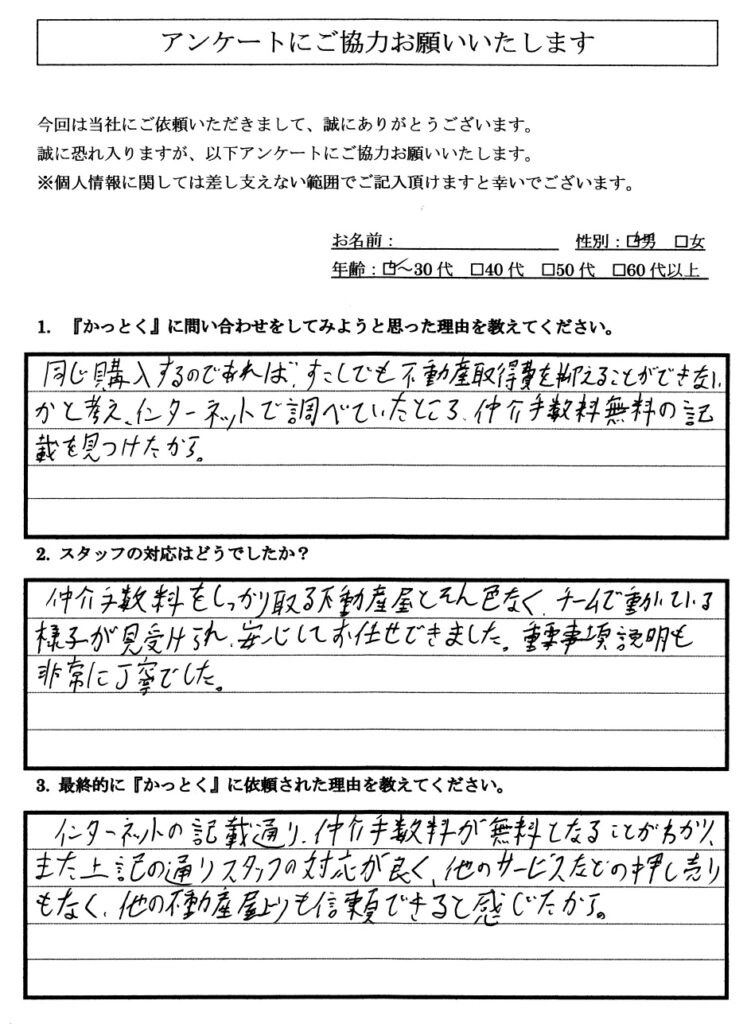 アンケートにご協力お願いいたします
今回は当社にご依頼いただきまして、誠にありがとうございます。
誠に恐れ入りますが、以下アンケートにご協力お願いいたします。
※個人情報に関しては差し支えない範囲でご記入頂けますと幸いでございます。
お名前： 性別：☑男 □女
年齢：☑～30代 □40代 □50代 □60代以上
1. 『かっとく』に問い合わせをしてみようと思った理由を教えてください。
同じ購入するのであれば、すこしでも不動産取得費を抑えることができない
かと考え、インターネットで調べていたところ、仲介手数料無料の記
載を見つけたから。
2. スタッフの対応はどうでしたか？
仲介手数料をしっかり取る不動産屋とそん色なく、チームで動いている
様子が見受けられ、安心してお任せできました。重要事項説明も
非常に丁寧でした。
3. 最終的に『かっとく』に依頼された理由を教えてください。
インターネットの記載通り、仲介手数料が無料となることがわかり、
また上記の通りスタッフの対応が良く、他のサービスなどの押し売り
もなく、他の不動産屋よりも信頼できると感じたから。